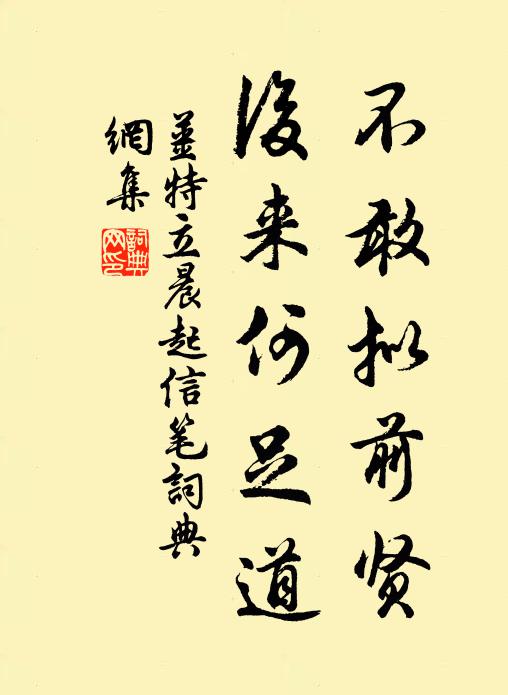 不敢拟前贤
後来何足道
姜特立晨起信笔詞典
網集
詞典网印